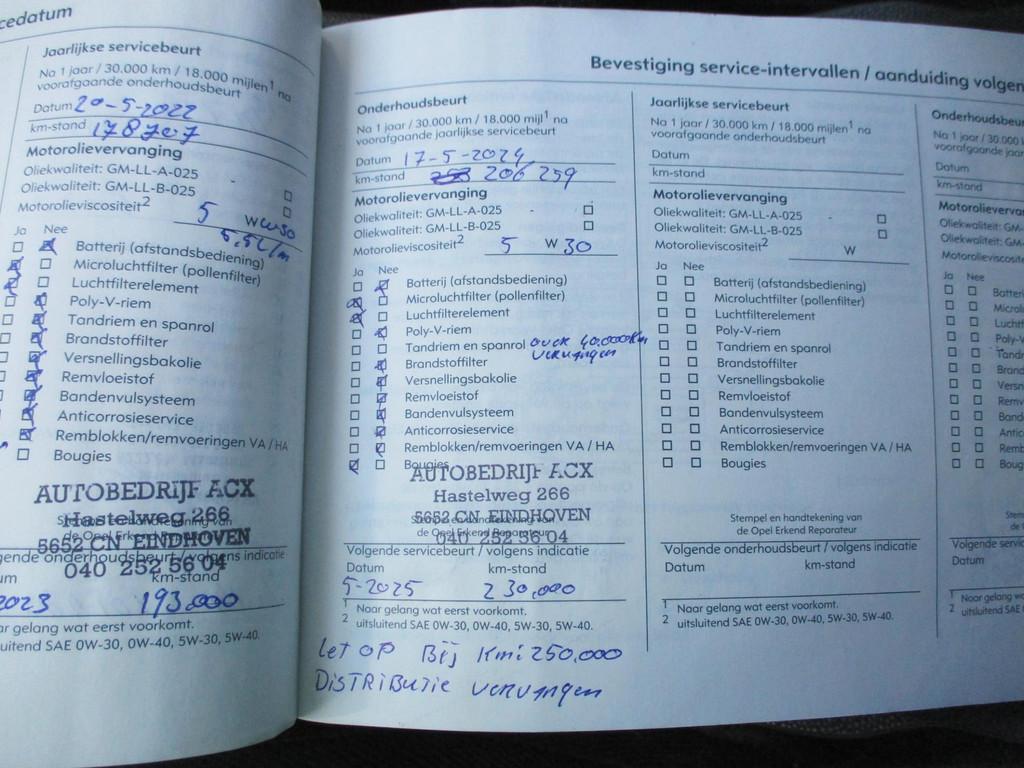 cedatum
Jaarlijkse servicebeurt
Na 1 jaar / 30.000 km / 18.000 mijlen1 na
voorafgaande onderhoudsbeurt
Datum 20-5-2022
km-stand 178707
Motorolievervanging
Oliekwaliteit: GM-LL-A-025
Oliekwaliteit: GM-LL-B-025
Motorolieviscositeit2 5 W
5.5L/m
Ja Nee
Batterij (afstandsbediening)
Microluchtfilter (pollenfilter)
Luchtfilterelement
Poly-V-riem
Tandriem en spanrol
Brandstoffilter
Versnellingsbakolie
Remvloeistof
Bandenvulsysteem
Anticorrosieservice
Remblokken/remvoeringen VA / HA
Bougies
AUTOBEDRIJF ACX
Hastelweg 266
Stempel en handtekening van
de Opel Erkend
5652 CN EINDHOVEN
gende onderhoudsbeurt / volgens indicatie
040 252 56 04
um km-stand
2023 193.000
ar gelang wat eerst voorkomt.
uitsluitend SAE 0W-30, 0W-40, 5W-30, 5W-40.
Bevestiging service-intervallen / aanduiding volgen
Onderhoudsbeurt
Na 1 jaar / 30.000 km / 18.000 mijl1 na
voorafgaande jaarlijkse servicebeurt
Datum 17-5-2024
km-stand 206 259
Motorolievervanging
Oliekwaliteit: GM-LL-A-025
Oliekwaliteit: GM-LL-B-025
Motorolieviscositeit2 5 W 30
Ja Nee
Batterij (afstandsbediening)
Microluchtfilter (pollenfilter)
Luchtfilterelement
Poly-V-riem
Tandriem en spanrol over 40.000km
vervangen
Brandstoffilter
Versnellingsbakolie
Remvloeistof
Bandenvulsysteem
Anticorrosieservice
Remblokken/remvoeringen VA / HA
Bougies
AUTOBEDRIJF ACX
Hastelweg 266
5652 CN EINDHOVEN
Stempel en handtekening van
de Opel Erkend Reparateur
040 252 56 04
Volgende servicebeurt / volgens indicatie
Datum km-stand
5-2025 230.000
1 Naar gelang wat eerst voorkomt.
2 uitsluitend SAE 0W-30, 0W-40, 5W-30, 5W-40.
Let OP Bij Km: 250.000
DISTRIBUTIE vervangen
Jaarlijkse servicebeurt
Na 1 jaar / 30.000 km / 18.000 mijlen1 na
voorafgaande onderhoudsbeurt
Datum
km-stand
Motorolievervanging
Oliekwaliteit: GM-LL-A-025
Oliekwaliteit: GM-LL-B-025
Motorolieviscositeit2 W
Ja Nee
Batterij (afstandsbediening)
Microluchtfilter (pollenfilter)
Luchtfilterelement
Poly-V-riem
Tandriem en spanrol
Brandstoffilter
Versnellingsbakolie
Remvloeistof
Bandenvulsysteem
Anticorrosieservice
Remblokken/remvoeringen VA / HA
Bougies
Stempel en handtekening van
de Opel Erkend Reparateur
Volgende onderhoudsbeurt / volgens indicatie
Datum km-stand
1 Naar gelang wat eerst voorkomt.
2 uitsluitend SAE 0W-30, 0W-40, 5W-30, 5W-40.
Onderhoudsbeu
Na 1 jaar / 30.000
voorafgaande jaar
Datum
km-stand
Motorolieverva
Oliekwaliteit: GM-
Oliekwaliteit: GM-
Motorolieviscosite
Ja Nee
Batteri
Microl
Luchtf
Poly-V
Tandr
Brand
Versn
Remv
Band
Antic
Remb
Boug
Stem
de
Volgende servic
Datum
1 Naar gelang w
2 uitsluitend SAE